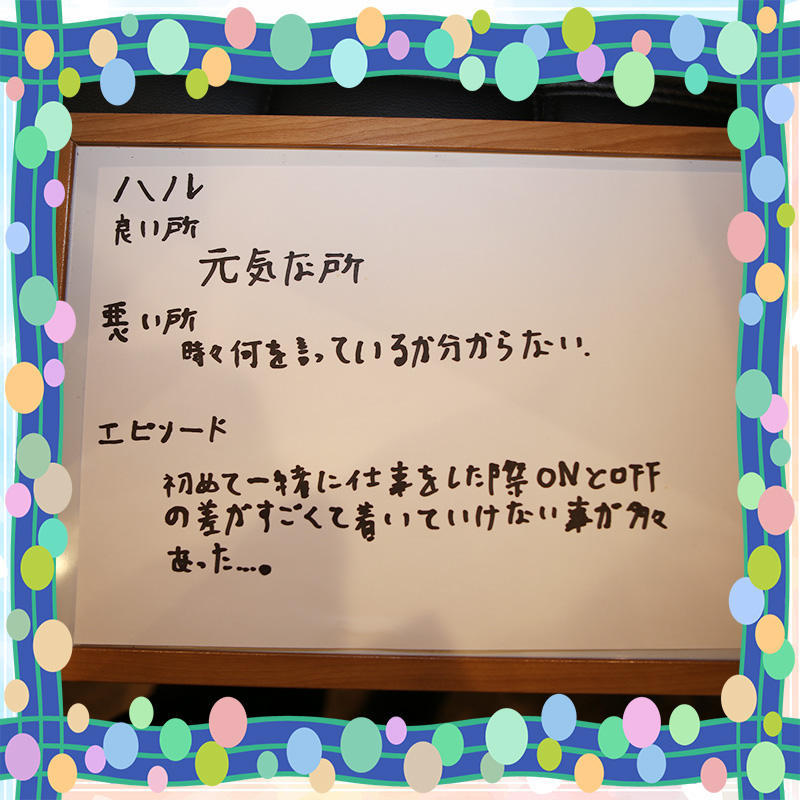 ハル
良い所
元気な所
悪い所
時々何を言っているか分からない.
エピソード
初めて一緒に仕事をした際ONとOFF
の差がすごくて着いていけない事が多々
あった....。